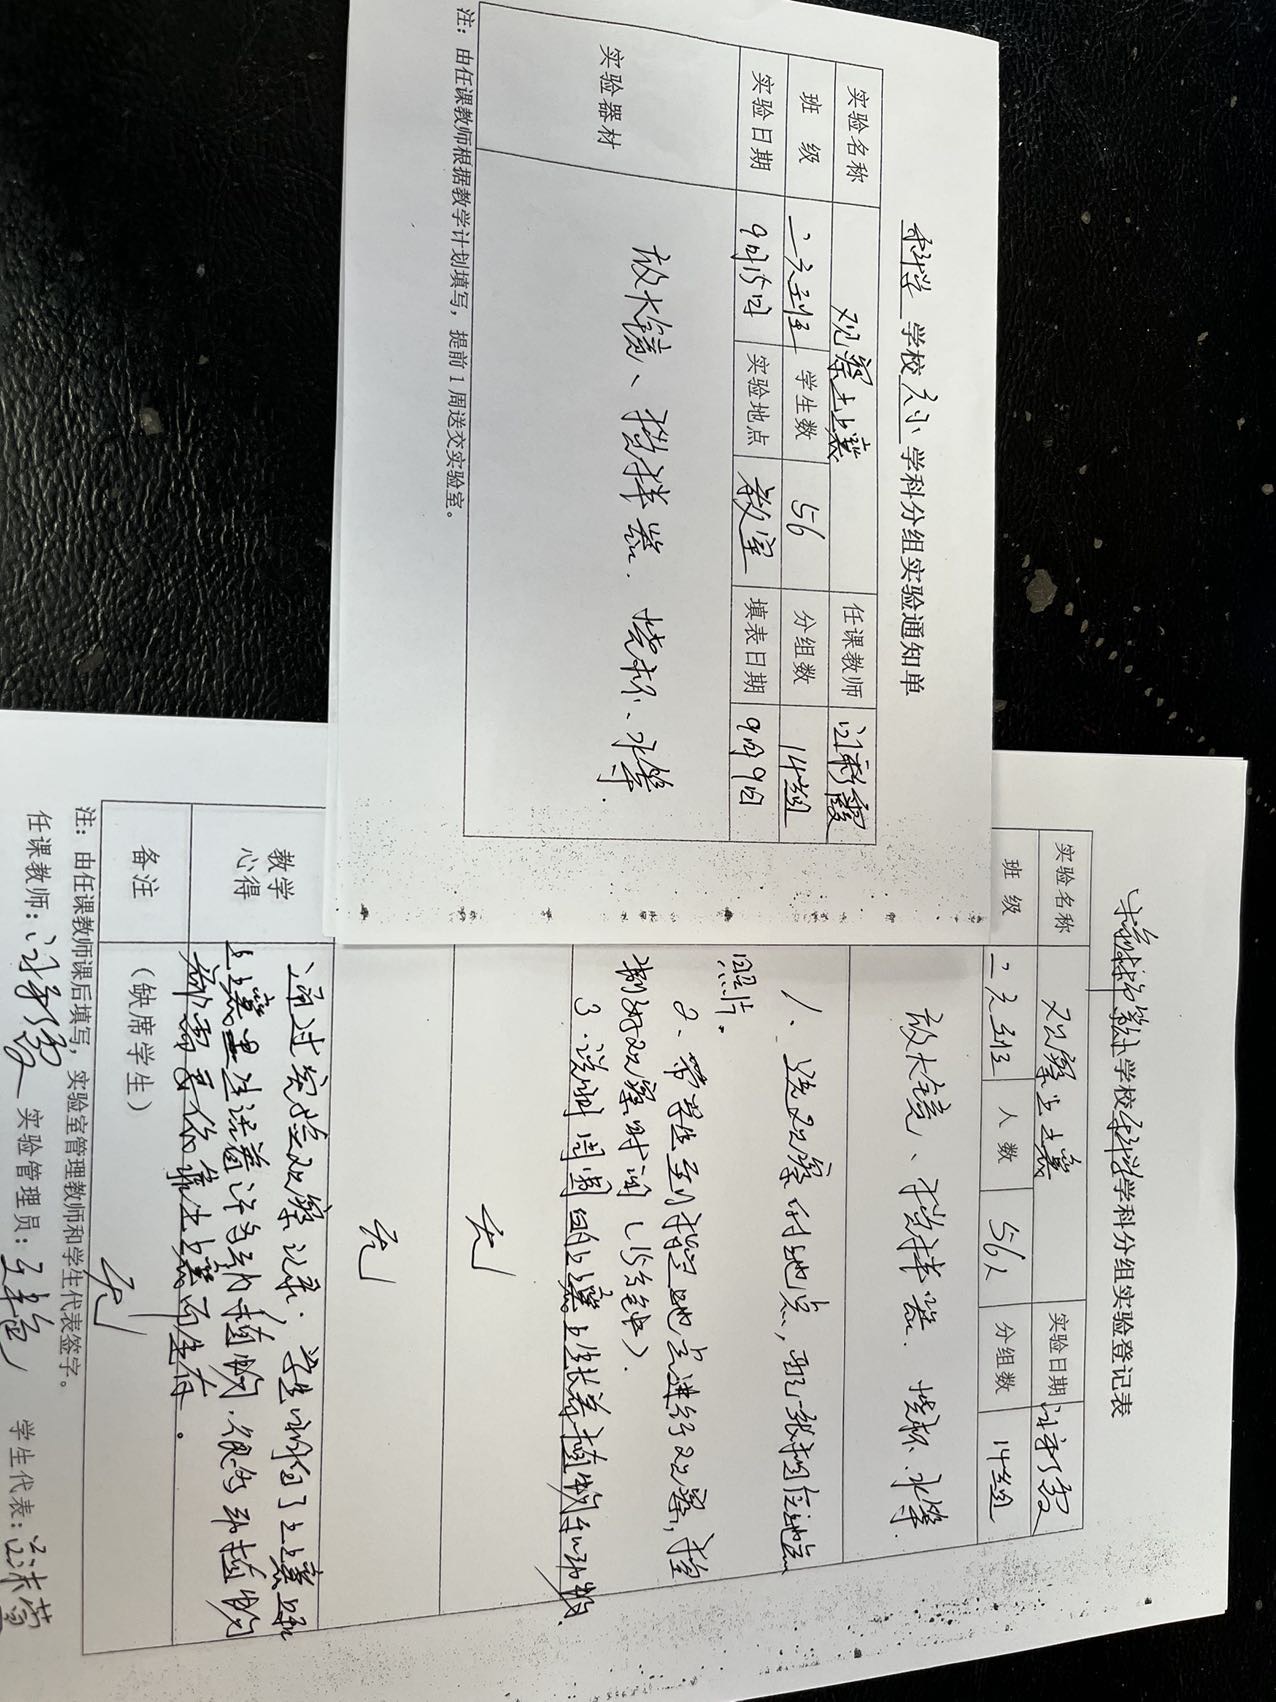 科学 学校 六小 学科分组实验通知单
实验名称 观察土壤 任课教师
班 级 二、三班 学生数 56 分组数 14组
实验日期 9月15日 实验地点 教室 填表日期 9月9日
实验器材 放大镜、搅拌器、烧杯、水等.
注：由任课教师根据教学计划填写，提前1周送交实验室。
学校科学学科分组实验登记表
实验名称 观察土壤 实验日期
班 级 二、三班 人 数 56人 分组数 14组
放大镜、搅拌器、烧杯、水等.
1、选观察的地点，配一张相应地点
照片。
2、带学生到指定地点进行观察，控
制好观察时间（15分钟）.
3.说明周围的土壤上生长着植物和动物.
无
无
教学
心得
通过实地观察记录，学生明白了土壤上和
土壤里生活着许多动植物，很多动植物
都需要依靠土壤而生存。
备注 （缺席学生） 无
注：由任课教师课后填写，实验室管理教师和学生代表签字。
任课教师： 实验管理员： 学生代表：